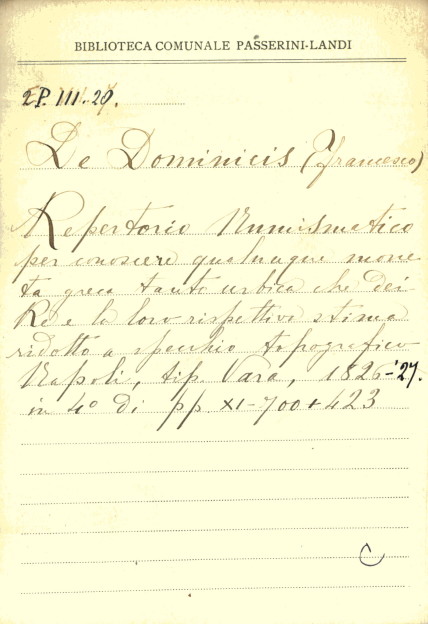 BIBLIOTECA COMUNALE PASSERINI-LANDI
2P. III.-29.
De Dominicis (Francesco)
Repertorio Numismatico
per conoscere qualunque mone
ta greca tanto urbica che dei
Re e la loro rispettiva stima
ridotto a specchio topografico
Napoli, tip. Vara, 1826-'27.
in 4º di pp XI-700+423
C